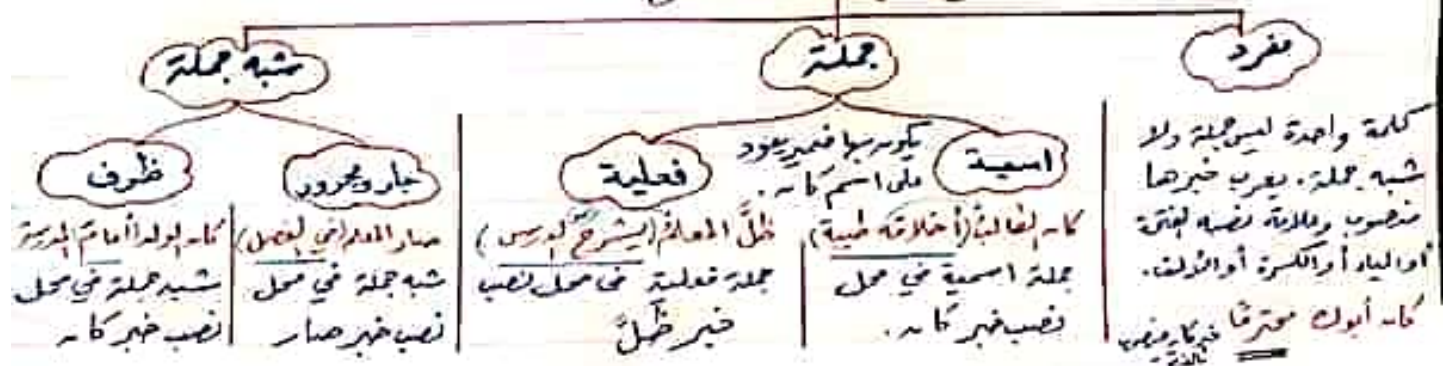 مفرد
كلمة واحدة ليس جملة ولا
شبه جملة. يعرب خبرها
منصوب وعلامة نصبه الفتحة
أو الياء أو الكسرة أو الألف.
كان أبوك محترمًا خبر كان منصوب
بالفتحة
جملة
اسمية
يكون بها ضمير يعود
على اسم كان.
كان الطالبُ (أخلاقه طيبة)
جملة اسمية في محل
نصب خبر كان.
فعلية
ظلَّ المعلمُ (يشرح الدرس)
جملة فعلية في محل نصب
خبر ظلَّ
شبه جملة
جار ومجرور
صار المعلم (في الفصل)
شبه جملة في محل
نصب خبر صار
ظرف
كان الولد أمام المدرسة
شبه جملة في محل
نصب خبر كان